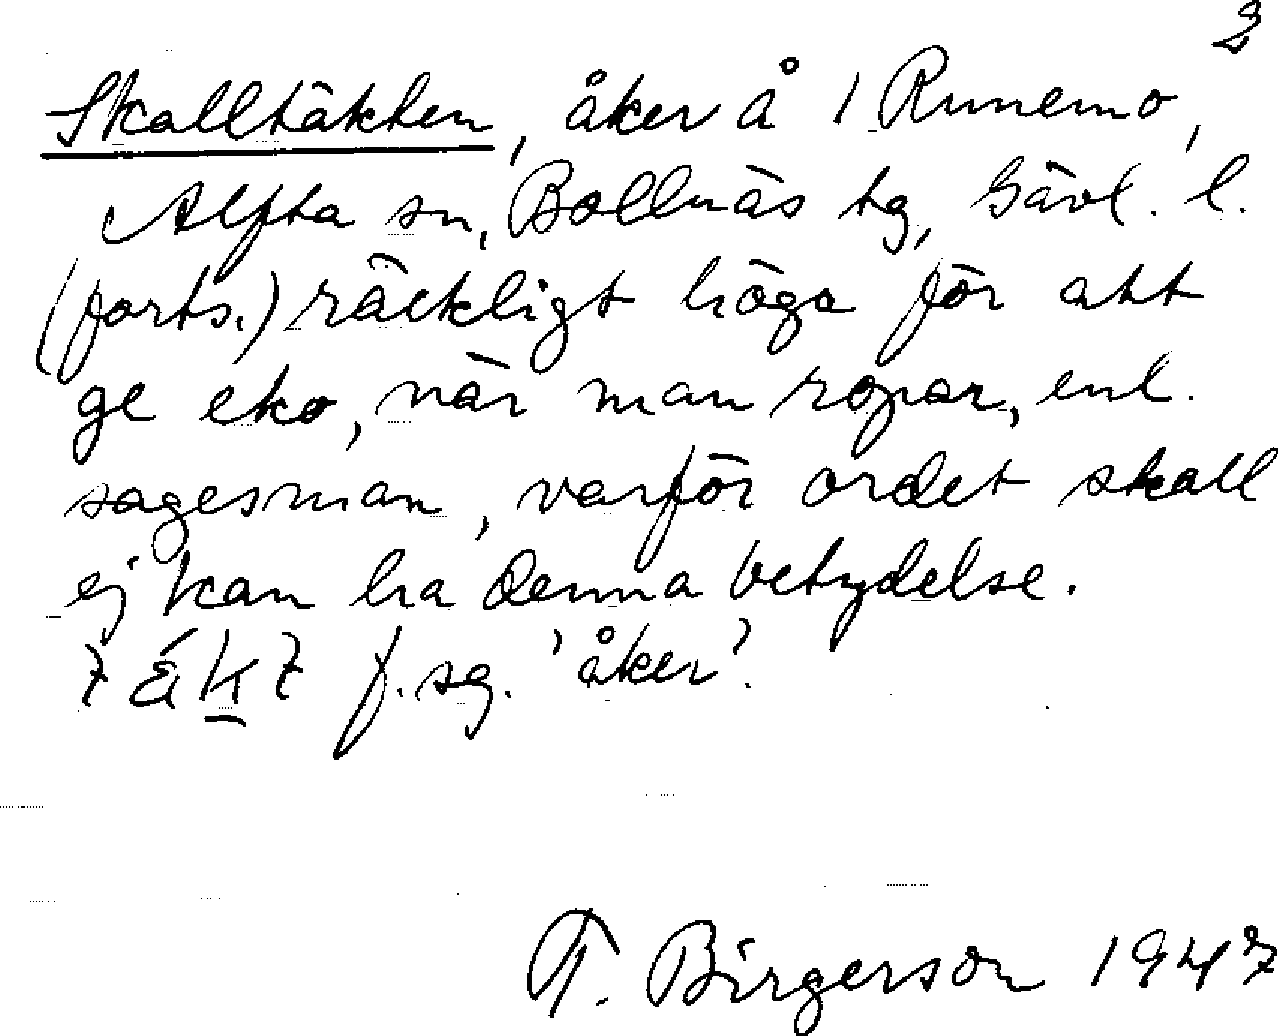 2
Skalltäkten, åker å 1 Runemo,
Alfta sn, Bollnäs tg, Gävl. l.
(forts.) räckligt höga för att
ge eko, när man ropar, enl.
sagesman, varför ordet skall
ej kan ha denna betydelse.
f. sg. 'åker'.
T. Birgerson 1947